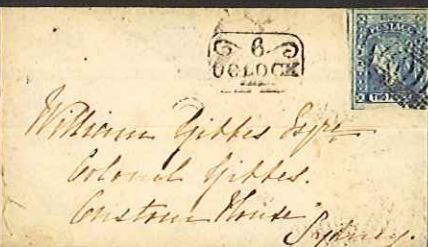 6
OCLOCK
POSTAGE
William Gibbes Esqre
Colonel Gibbes.
Custom House
Sydney.